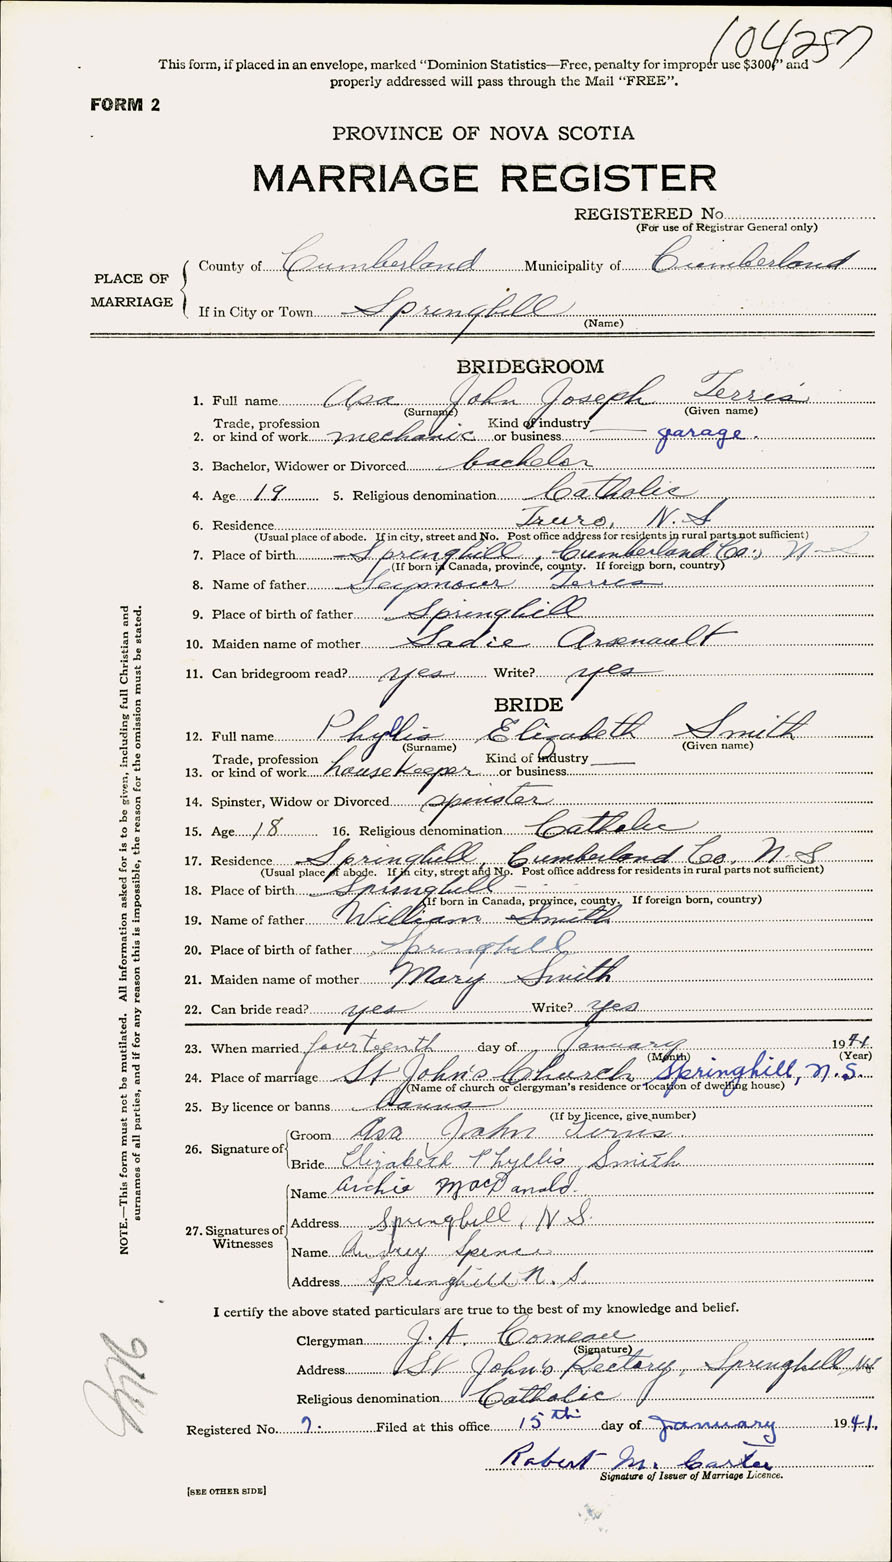 104257
This form, if placed in an envelope, marked "Dominion Statistics—Free, penalty for improper use $300," and
properly addressed will pass through the Mail "FREE".
FORM 2
PROVINCE OF NOVA SCOTIA
MARRIAGE REGISTER
REGISTERED No.
(For use of Registrar General only)
PLACE OF MARRIAGE
County of Cumberland Municipality of Cumberland
If in City or Town Springhill
(Name)
BRIDEGROOM
1. Full name Asa John Joseph Terris
(Surname) (Given name)
2. Trade, profession or kind of work mechanic Kind of industry or business garage.
3. Bachelor, Widower or Divorced bachelor
4. Age 19 5. Religious denomination Catholic
6. Residence Truro, N.S
(Usual place of abode. If in city, street and No. Post office address for residents in rural parts not sufficient)
7. Place of birth Springhill, Cumberland Co., N-S
(If born in Canada, province, county. If foreign born, country)
8. Name of father Seymour Terris
9. Place of birth of father Springhill
10. Maiden name of mother Sadie Arsenault
11. Can bridegroom read? yes Write? yes
BRIDE
12. Full name Phyllis Elizabeth Smith
(Surname) (Given name)
13. Trade, profession or kind of work housekeeper Kind of industry or business
14. Spinster, Widow or Divorced spinster
15. Age 18 16. Religious denomination Catholic
17. Residence Springhill, Cumberland Co. N.S
(Usual place of abode. If in city, street and No. Post office address for residents in rural parts not sufficient)
18. Place of birth Springhill
(If born in Canada, province, county. If foreign born, country)
19. Name of father William Smith
20. Place of birth of father Springhill
21. Maiden name of mother Mary Smith
22. Can bride read? yes Write? yes
23. When married fourteenth day of January 1941.
(Month) (Year)
24. Place of marriage St John's Church Springhill, N.S.
(Name of church or clergyman's residence or location of dwelling house)
25. By licence or banns banns
(If by licence, give number)
26. Signature of
Groom Asa John Terris.
Bride Elizabeth Phyllis Smith
27. Signatures of Witnesses
Name Archie MacDonald.
Address Springhill, N S.
Name Audrey Spence
Address Springhill N. S.
I certify the above stated particulars are true to the best of my knowledge and belief.
Clergyman J. A. Comeau
(Signature)
Address St John's Rectory, Springhill, NS
Religious denomination Catholic
Registered No. 7. Filed at this office 15th day of January 1941.
Robert M. Carter
Signature of Issuer of Marriage Licence.
[SEE OTHER SIDE]
NOTE.—This form must not be mutilated. All information asked for is to be given, including full Christian and
surnames of all parties, and if for any reason this is impossible, the reason for the omission must be stated.